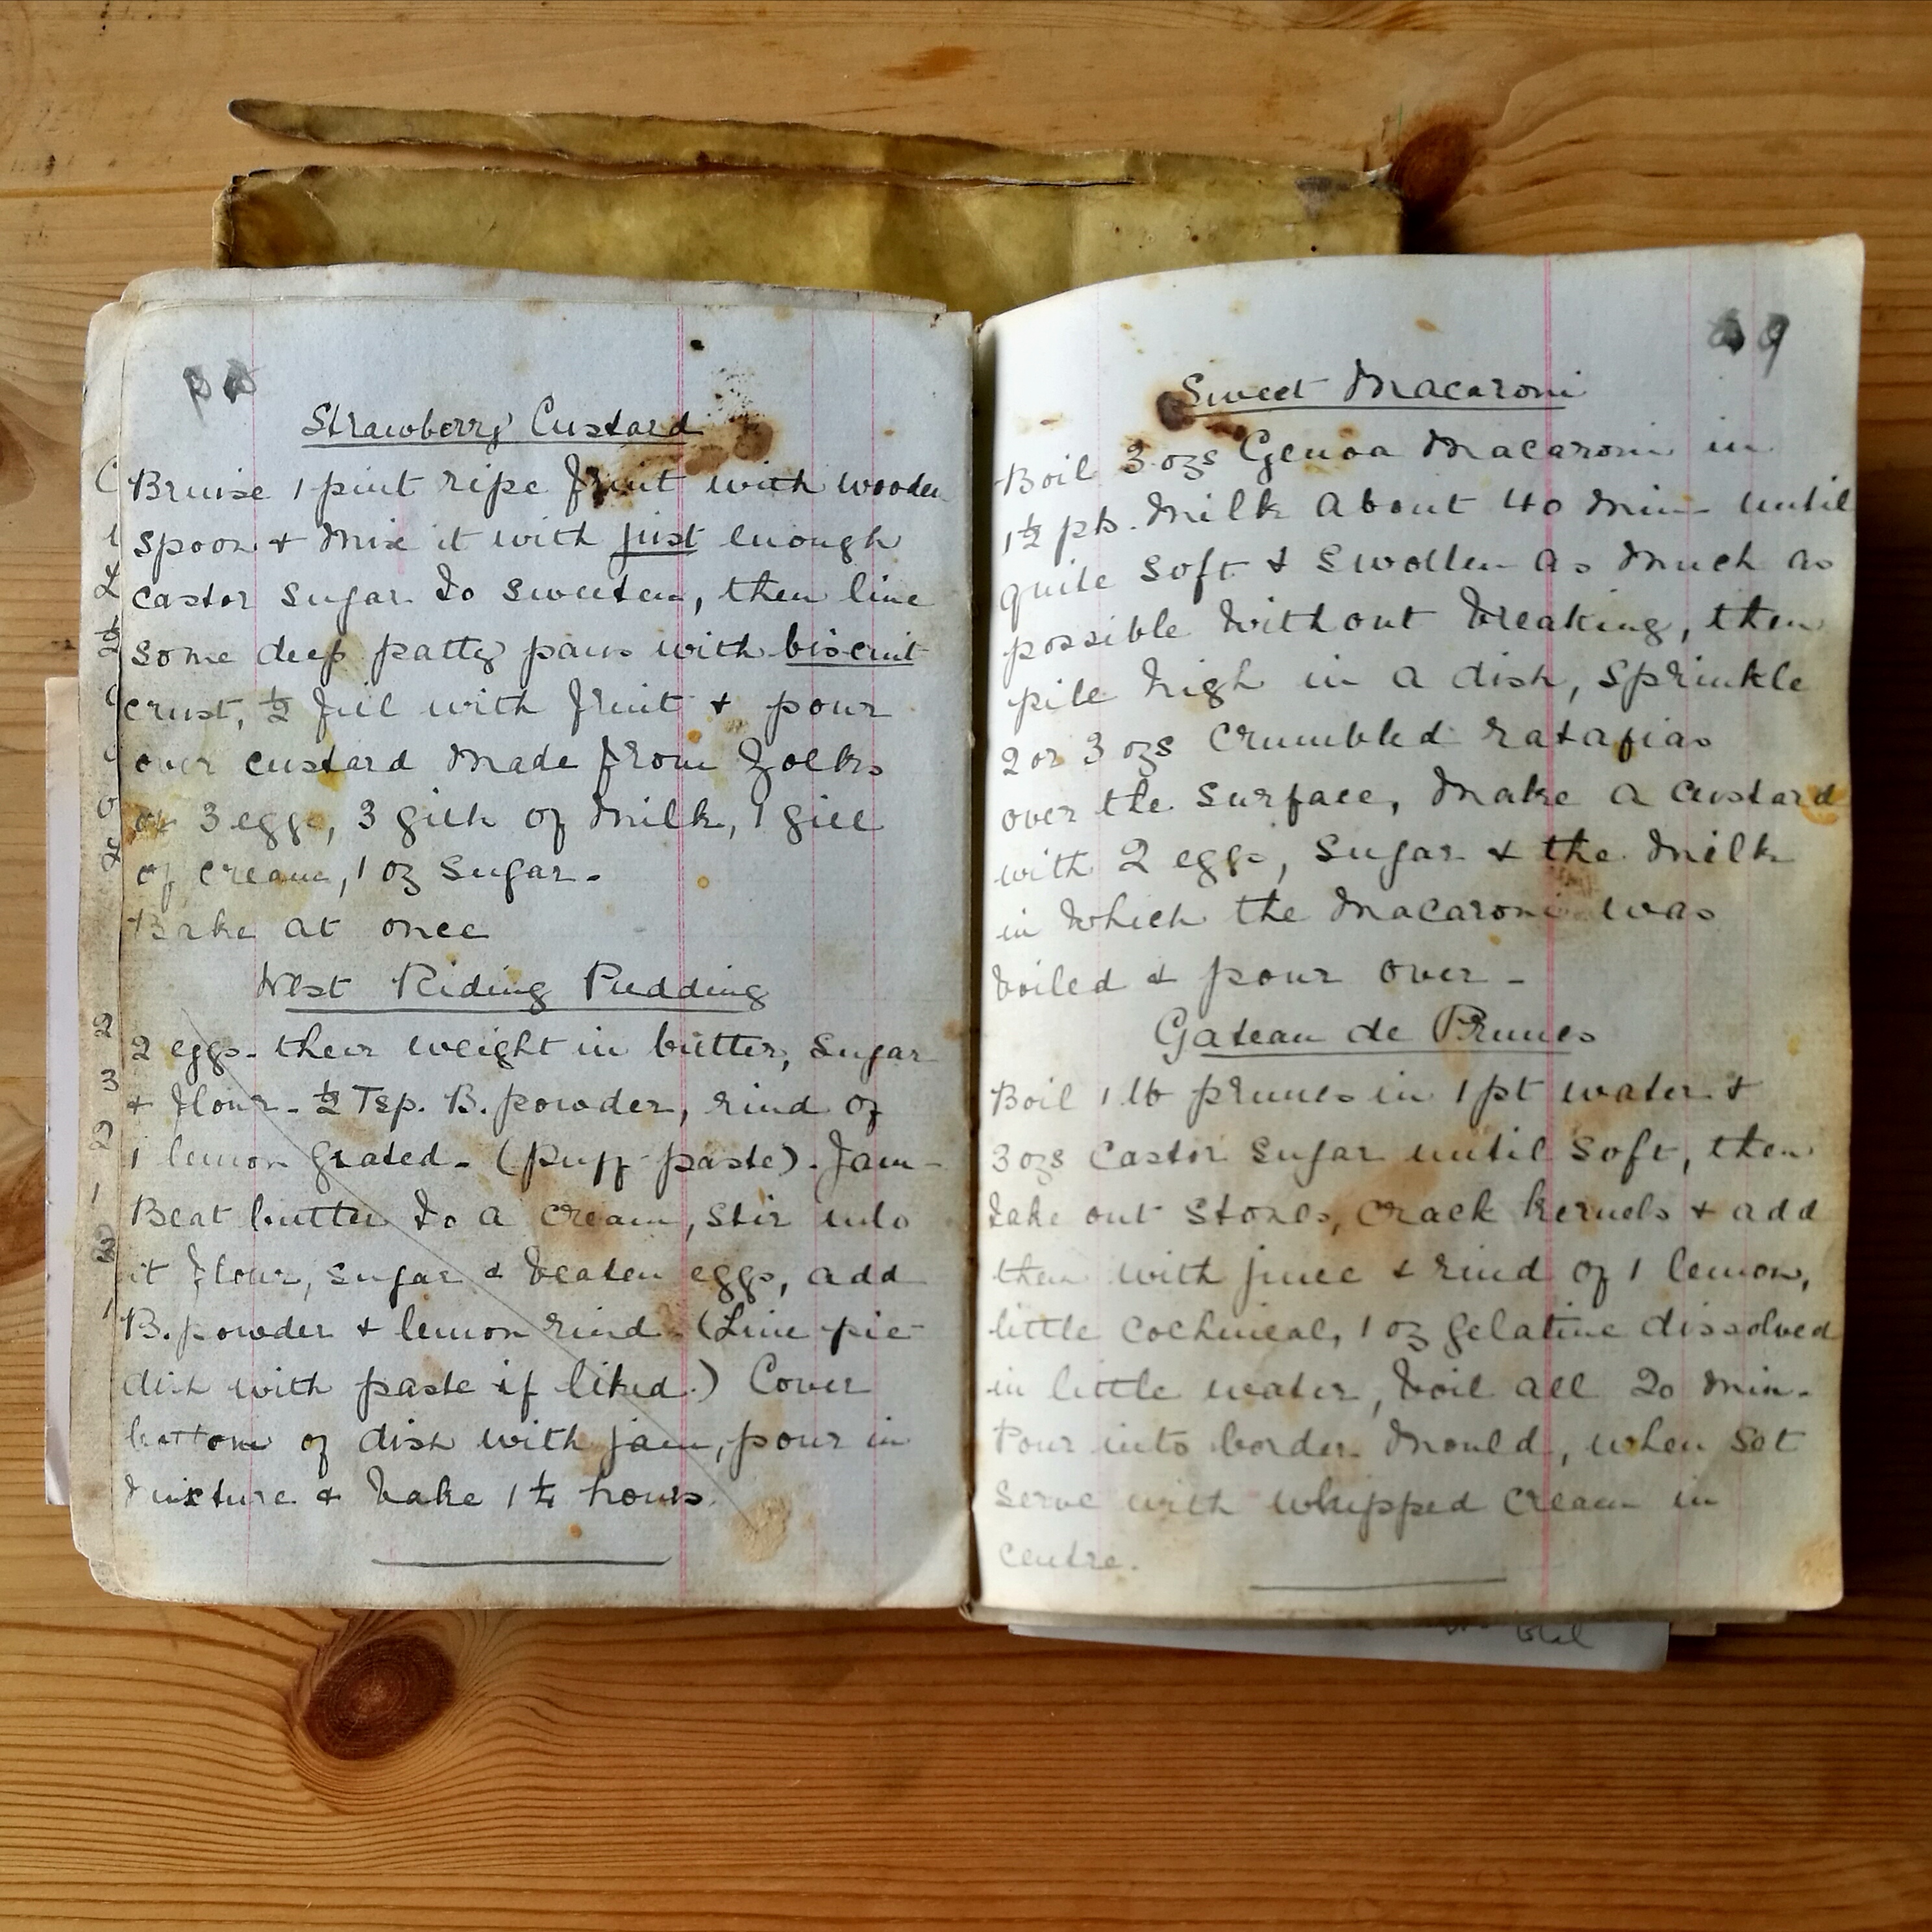 Strawberry Custard
Bruise 1 pint ripe fruit with wooden
spoon & mix it with just enough
castor sugar to sweeten, then line
some deep patty pans with biscuit
crust, ½ fill with fruit & pour
over custard made from yolks
of 3 eggs, 3 gills of milk, 1 gill
of cream, 1 oz sugar.
Bake at once
West Riding Pudding
2 eggs - their weight in butter, sugar
& flour - ½ Tsp. B. powder, rind of
1 lemon grated - (puff paste). Jam -
Beat butter to a cream, stir into
it flour, sugar & beaten eggs, add
B. powder & lemon rind. (Line pie
dish with paste if liked.) Cover
bottom of dish with jam, pour in
mixture & bake 1¼ hours.
69
Sweet Macaroni
Boil 3 ozs Genoa Macaroni in
1½ pts. milk about 40 min - until
quite soft & swollen as much as
possible without breaking, then
pile high in a dish, sprinkle
2 or 3 ozs crumbled ratafias
over the surface, make a custard
with 2 eggs, sugar & the milk
in which the macaroni was
boiled & pour over -
Gateau de Prunes
Boil 1 lb prunes in 1 pt water &
3 ozs castor sugar until soft, then
take out stones, crack kernels & add
then with juice & rind of 1 lemon,
little cochineal, 1 oz gelatine dissolved
in little water, boil all 20 min.
Pour into border mould, when set
serve with whipped cream in
centre.